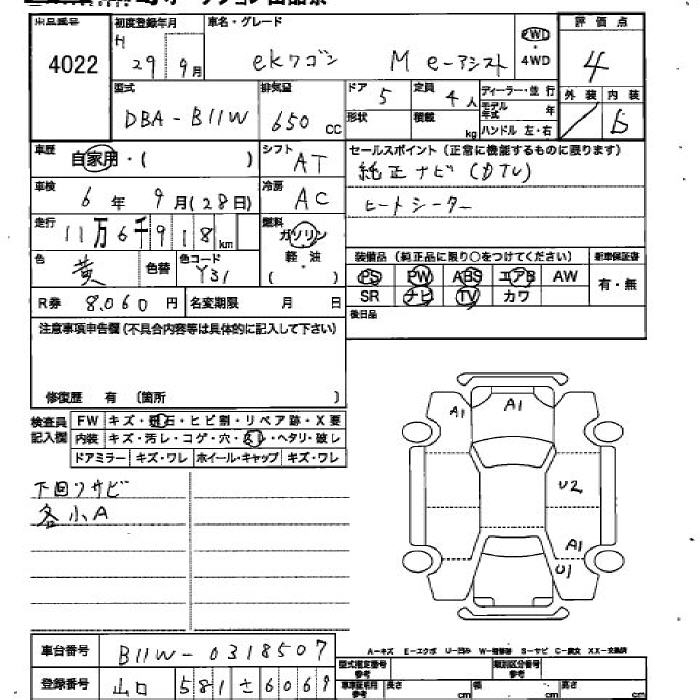 出品番号 4022
初度登録年月 H 29 9月
車名・グレード ekワゴン M e-アシスト
2WD・4WD
評価点 4
型式 DBA-B11W
排気量 650 CC
ドア 5
形状
定員 4人
積載 kg
ディーラー・並行
モデル年式 年
ハンドル 左・右
外装 内装
車歴 自家用・( )
シフト AT
セールスポイント (正常に機能するものに限ります)
純正ナビ(DTV)
ヒートシーター
車検 6年 9月(28日)
冷房 AC
走行 11万6千918km
燃料 ガソリン 軽・油 ( )
色 黄 色替 色コード Y31
装備品 (純正品に限り○をつけてください)
新車保証書 有・無
PS PW ABS エアB AW
SR ナビ TV カワ
後日品
R券 8,060円 名変期限 月 日
注意事項申告欄(不具合内容等は具体的に記入して下さい)
修復歴 有 〔箇所 〕
検査員記入欄
FW キズ・飛石・ヒビ割・リペア跡・X要
内装 キズ・汚レ・コゲ・穴・スレ・ヘタリ・破レ
ドアミラー キズ・ワレ ホイール・キャップ キズ・ワレ
下回りサビ
各小A
A1 A1
U2
A1
U1
A-キズ E-エクボ U-凹み W-補修跡 S-サビ C-腐食 XX-交換済
車台番号 B11W-0318507
登録番号 山口 581 さ 6069
型式指定番号 参考
類別区分番号 参考
車車証明用 参考 長さ cm 幅 cm 高さ cm